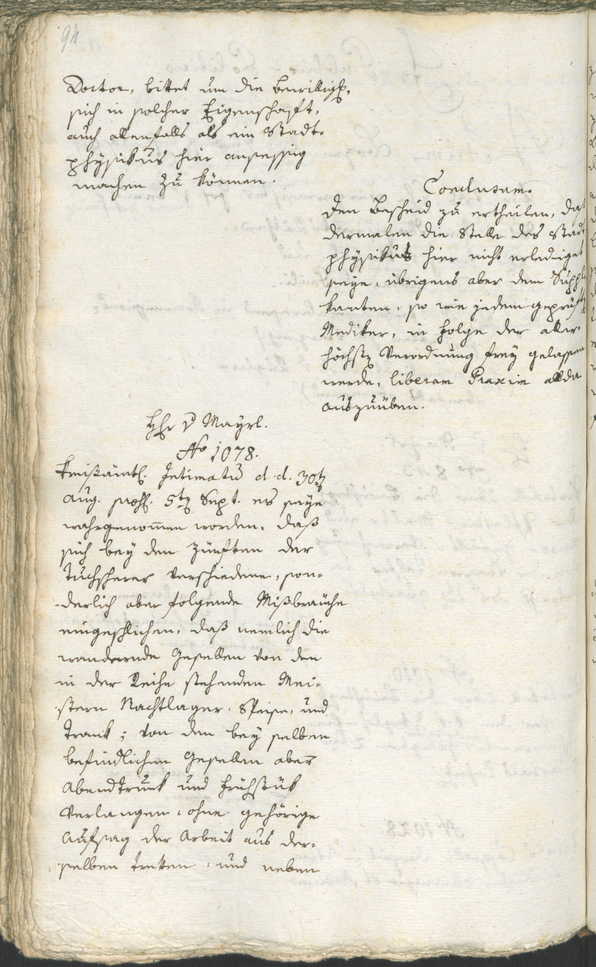 94
Doctor, bittet um die Bewilligg,
sich in solcher Eigenschaft,
auch allenfalls als ein Stadt-
physikus hier ansessig
machen zu können.
Conclusum.
Den Bescheid zu ertheilen, daß
dermalen die Stelle des Stadt
physikus hier nicht erlediget
seye, übrigens aber dem Suppli
kanten, so wie jedem geprüft
Mediker, in Folge der aller
höchstn Verordnung frey gelassen
werde, liberam Praxim allda
auszuüben.
Hhr v Mayrl.
No 1078.
Kreisämtl. Intimatum d. d. 30tn
Aug. pschl. 5tn Sept. es seye
wahrgenommen worden, daß
sich bey den Zünften der
Tuchscherer verschiedene, son-
derlich aber folgende Mißbräuche
eingeschlichen, daß nemlich die
wandernde Gesellen von den
in der Reihe stehenden Mei-
stern Nachtlager, Speise, und
Trank; von den bey selben
befindlichen Gesellen aber
Abendtrunk und Frühstük
verlangen, ohne gehörige
Aufsag der Arbeit aus der-
selben treten, und neben